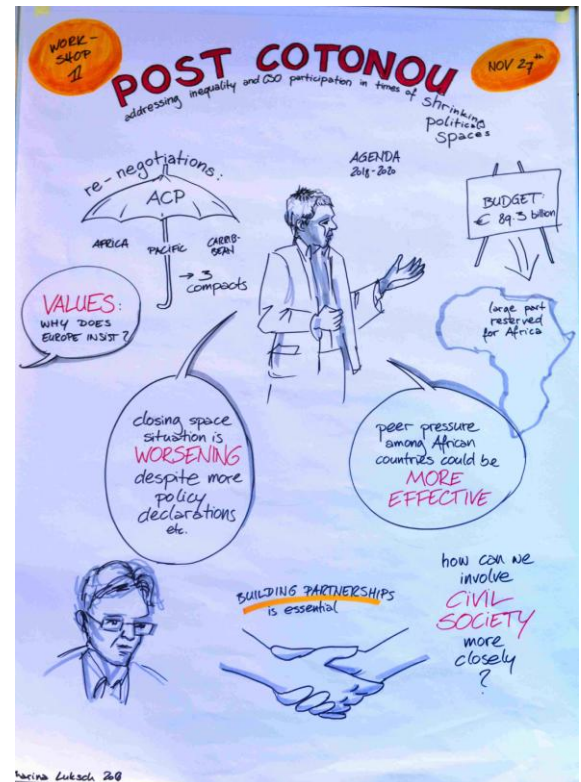 WORK-
SHOP
II
POST COTONOU
NOV 27th
addressing inequality and CSO participation in times of shrinking
political
spaces
re-negotiations:
ACP
AFRICA PACIFIC CARIB-
BEAN
→ 3
compacts
AGENDA
2018-2020
BUDGET:
€ 89.3 billion
large part
reserved
for Africa
VALUES:
WHY DOES
EUROPE INSIST?
closing space
situation is
WORSENING
despite more
policy
declarations
etc.
peer pressure
among African
countries could be
MORE
EFFECTIVE
BUILDING PARTNERSHIPS
is essential
how can we
involve
CIVIL
SOCIETY
more
closely
?
Luksch 2018